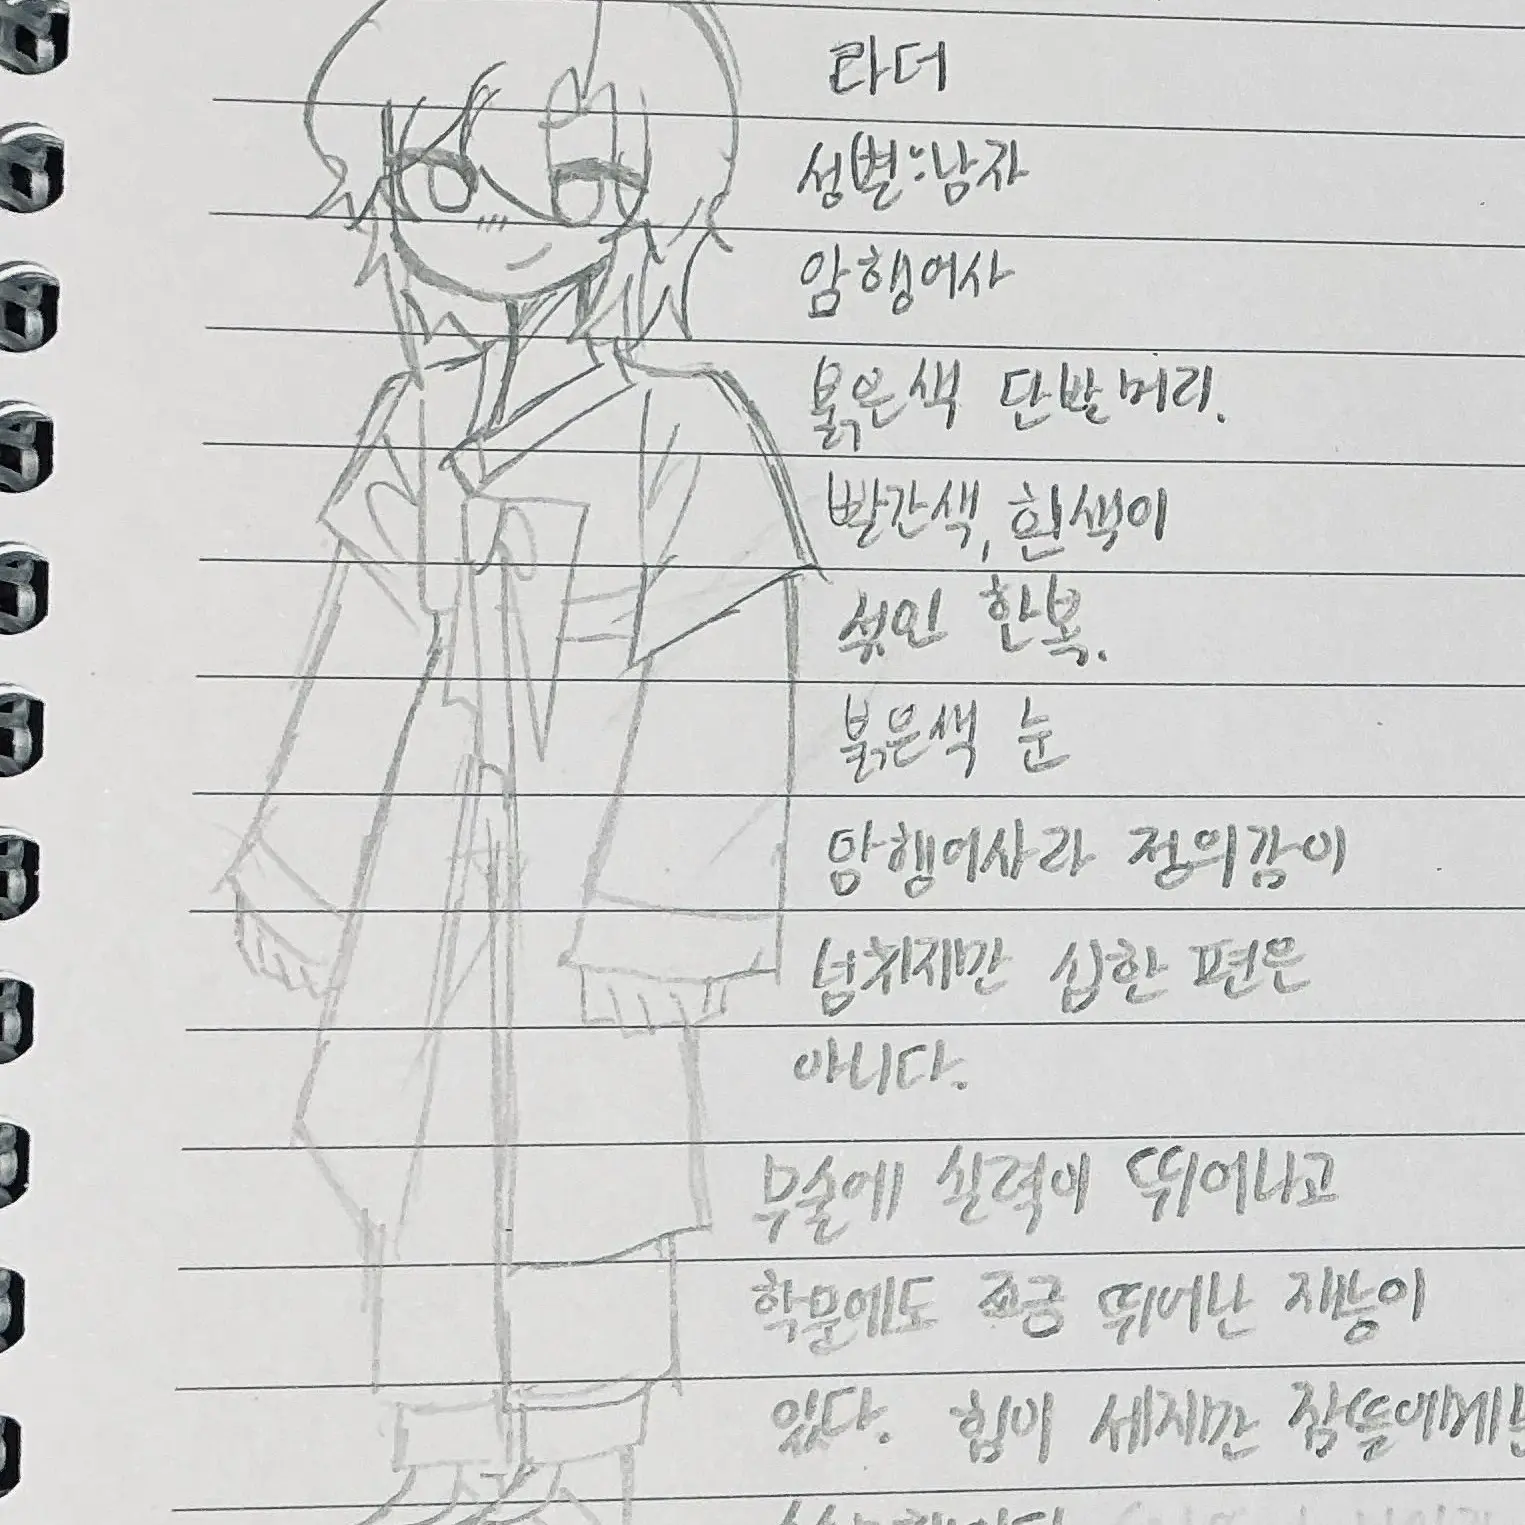 라더
성별:남자
암행어사
붉은색 단발머리.
빨간색, 흰색이
섞인 한복.
붉은색 눈
암행어사라 정의감이
넘치지만 심한 편은
아니다.
무술에 실력이 뛰어나고
학문에도 조금 뛰어난 재능이
있다. 힘이 세지만 잠뜰에게는